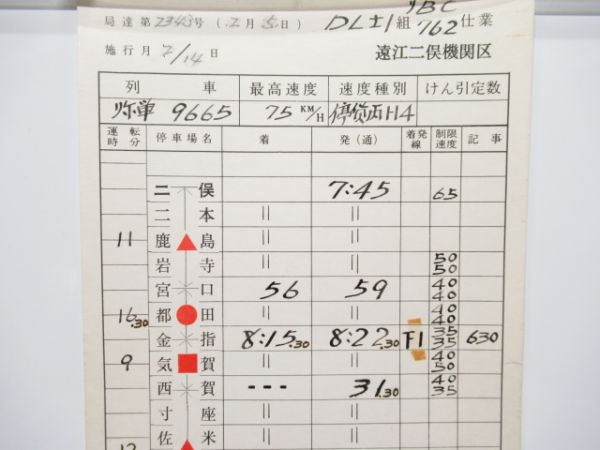 局達第2343号(2月5日) DL士1組762仕業
施行月 2/14 日 遠江二俣機関区
列車 最高速度 速度種別 けん引定数
弥単 9665 75 KM/H 停貨丙H4
運転時分 停車場名 着 発(通) 着発線 制限速度 記事
二俣 7:45 65
二本 〃 〃
11 鹿島 〃 〃
岩寺 〃 〃 50 50
宮口 56 59 40 40
16.30 都田 〃 〃 40 40
金指 8:15.30 8:22.30 下1 35 35 630
9 気賀 〃 〃 40 50
西賀 --- 31.30 40 35
寸座 〃 〃
佐米 〃 〃
12